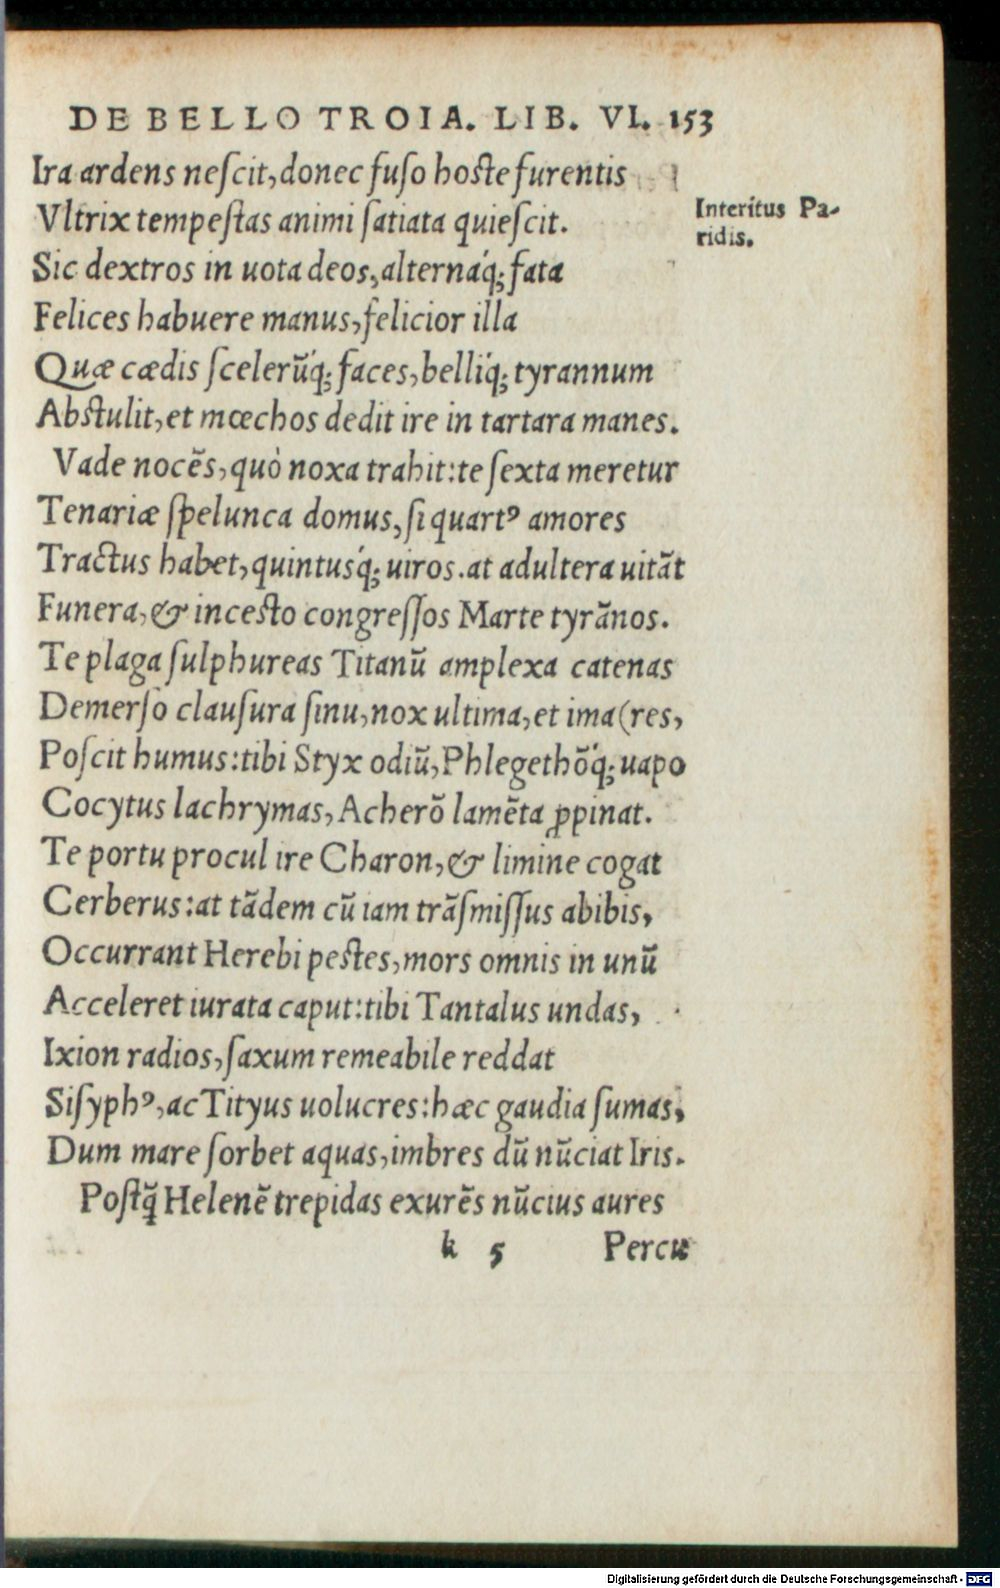 DE BELLO TROIA. LIB. VI. 153
Ira ardens neſcit, donec fuſo hoſte furentis
Vltrix tempeſtas animi ſatiata quieſcit.
Interitus Pa-
ridis.
Sic dextros in uota deos, alternáq́; fata
Felices habuere manus, felicior illa
Quæ cædis ſcelerũq́; faces, belliq́; tyrannum
Abſtulit, et mœchos dedit ire in tartara manes.
Vade nocẽs, quò noxa trahit: te ſexta meretur
Tenariæ ſpelunca domus, ſi quartꝰ amores
Tractus habet, quintusq́; uiros. at adultera uitãt
Funera, & inceſto congreſſos Marte tyrãnos.
Te plaga ſulphureas Titanũ amplexa catenas
Demerſo clauſura ſinu, nox ultima, et ima (res,
Poſcit humus: tibi Styx odiũ, Phlegethõq́; uapo
Cocytus lachrymas, Acherõ lamẽta ꝓpinat.
Te portu procul ire Charon, & limine cogat
Cerberus: at tãdem cũ iam trãſmiſſus abibis,
Occurrant Herebi peſtes, mors omnis in unũ
Acceleret iurata caput: tibi Tantalus undas,
Ixion radios, ſaxum remeabile reddat
Siſyphꝰ, ac Tityus uolucres: hæc gaudia ſumas,
Dum mare ſorbet aquas, imbres dũ nũciat Iris.
Poſtq̃ Helenẽ trepidas exurẽs nũcius aures
k 5 Percu
Digitalisierung gefördert durch die Deutsche Forschungsgemeinschaft - DFG